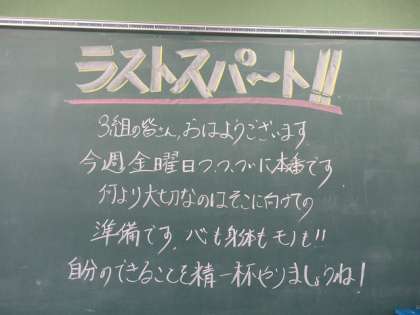 ラストスパ〜ト!!
3組の皆さん,おはようございます
今週金曜日つ、つ、ついに本番です
何より大切なのはそこに向けての
準備です。心も身体もモノも!!
自分のできることを精一杯やりましょうね!